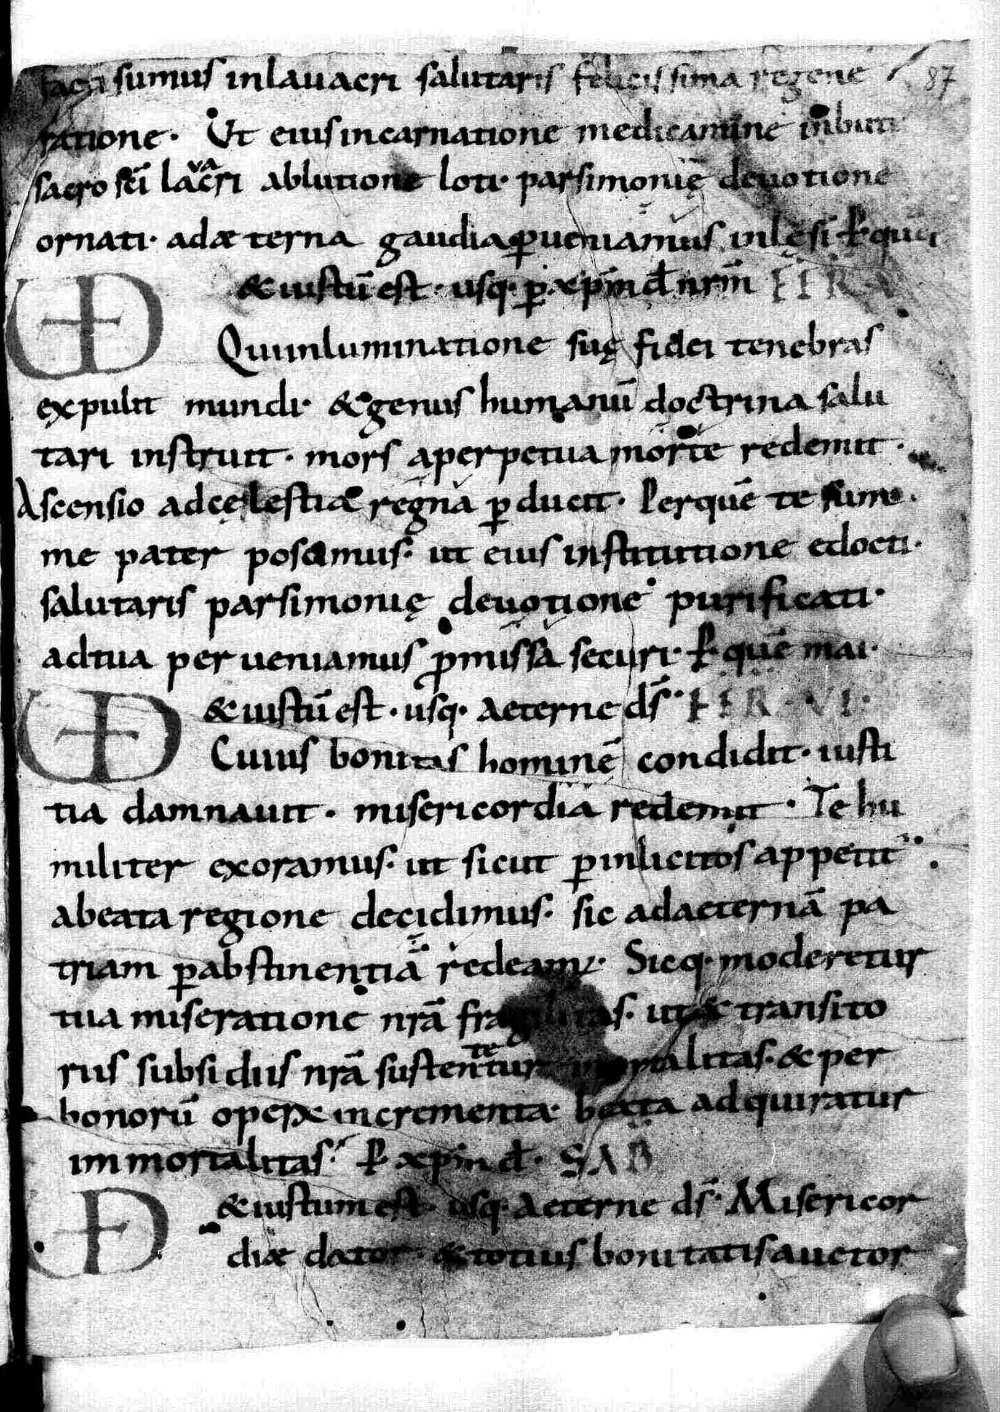 facti sumus inlauacri salutaris felicissima regene 87
ratione· Ut eiusincarnatione medicamine inbuti
sacro sc̄i lavacri ablutione loti· parsimonię deuotione
ornati· adæterna gaudiaꝑueniamus inlęsi· P̄ quē
VD &iustū est· usq· ꝑ xp̄m d̄ nr̄m FER· V
Quiinluminatione suę fidei tenebras
expulit mundi· &genus humanū doctrina salu
tari instruit· mors aperpetua morte redemit·
Ascensio adcęlestia regna ꝑducit· Perquē te sum
me pater poscimus· ut eius institutione edocti·
salutaris parsimonię deuotione purificati·
adtua perueniamus ꝓmissa securi· P̄ quē mai·
VD &iustū est· usq· Aeterne ds̄· FER· VI·
Cuius bonitas hominē condidit· iusti
tia damnauit· misericordia redemit· Te hu
militer exoramus· ut sicut ꝑinlicitos appetit
abeata regione decidimus· sic adaeternā pa
triam ꝑabstinentiā redeamus· Sicq· moderetur
tua miseratione nrā fragilitas· ut & transito
riis subsidiis nrā sustentetur mortalitas· & per
bonorū operū incrementa· beata adquiratur
immortalitas· P̄ xp̄m d̄· SAB
VD &iustum est· usq· Aeterne ds̄· Misericor
diæ dator· &totius bonitatis auctor